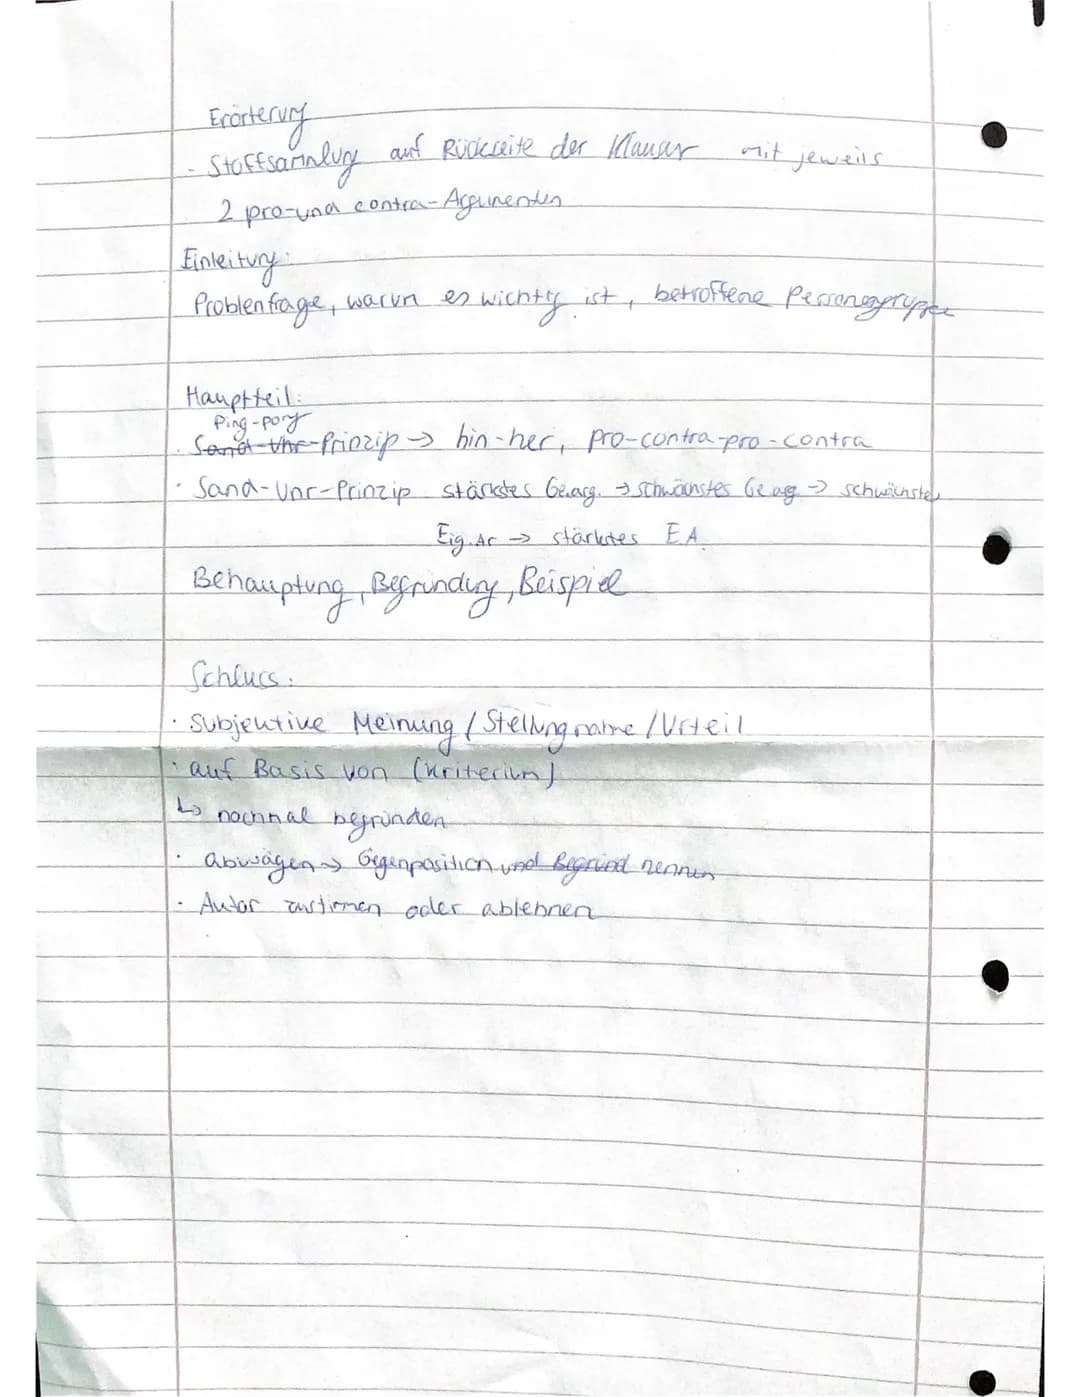 Erörterung
- Stoffsammlung auf Rückseite der Klausur mit jeweils
2 pro-und contra-Argumenten
Einleitung:
Problemfrage, warum es wichtig ist, betroffene Personengruppe
Hauptteil:
Ping-pong
· Sand-Uhr-Prinzip → hin-her, pro-contra-pro-contra
· Sand-Uhr-Prinzip stärkstes Ge.arg. → schwächstes Ge arg → schwächstes
Eig. Ar → stärkstes E.A.
Behauptung, Begründung, Beispiel
Schluss:
· Subjektive Meinung / Stellungnahme / Urteil
· auf Basis von (Kriterium)
↳ nochmal begründen
· abwägen → Gegenposition und Begründ nennen
· Autor zustimmen oder ablehnen